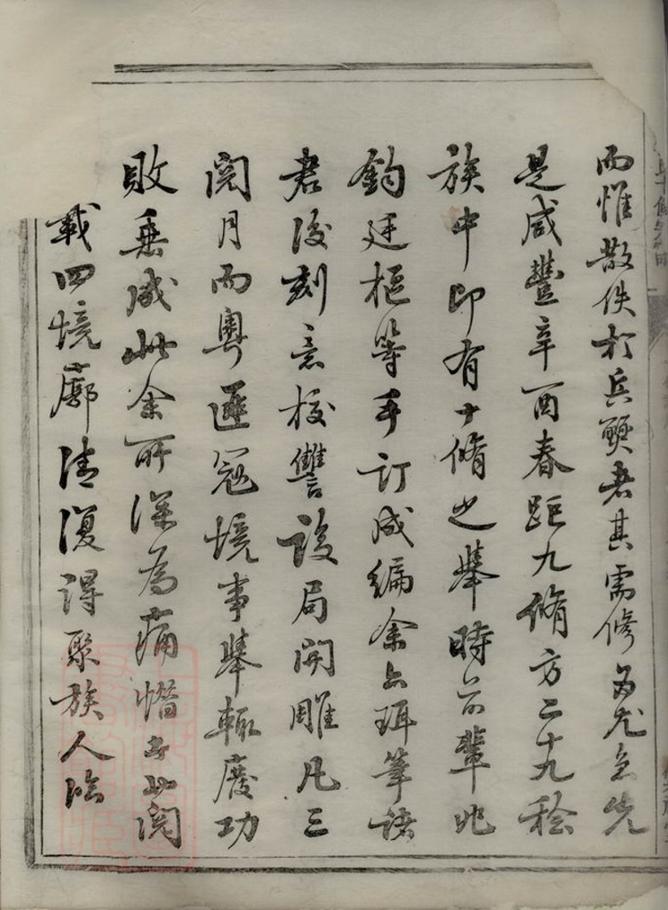 而惟散佚於兵燹者其需修為尤急先
是咸豐辛酉春距九脩方二十九稔
族中即有十脩之舉時前輩
鈞廷樞等手訂成編余亦珥筆諸
君後刻意校讐設局開雕凡三
閱月而粵匪冦境事舉輒廢功
敗垂成此余所深為痛惜者此閱
載四境廓清復得聚族人